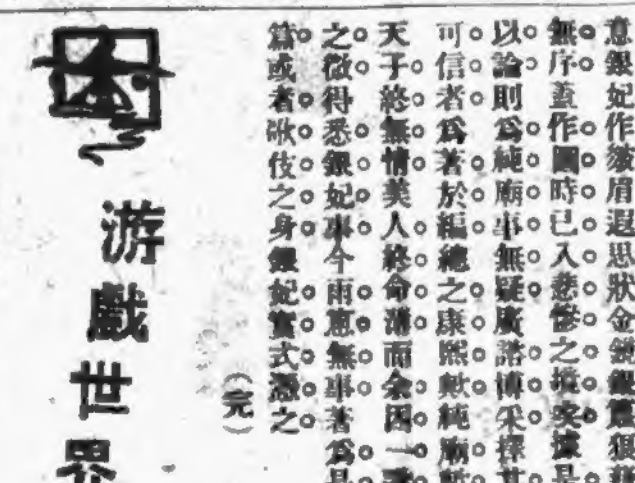 意銀妃作皺眉遐思狀金
無序蓋作圖時已入悲慘之境矣據是
以論則爲純廟事無疑廣諮博采擇其
可信者爲著於編總之康熙歟純廟歟
天子終無情美人終命薄而余因一
之徵得悉銀妃事今雨窗無事著爲是
篇或者歌伎之身銀妃實式憑之
（完）
游戲世界